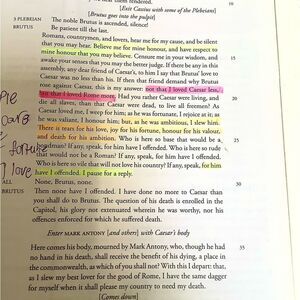 hear them rendered.
[Exit Cassius with some of the Plebeians]
[Brutus goes into the pulpit]
3 PLEBEIAN The noble Brutus is ascended, silence!
BRUTUS Be patient till the last.
Romans, countrymen, and lovers, hear me for my cause, and be silent
that you may hear. Believe me for mine honour, and have respect to
mine honour that you may believe. Censure me in your wisdom, and 15
awake your senses that you may the better judge. If there be any in this
assembly, any dear friend of Caesar's, to him I say that Brutus' love to
Caesar was no less than his. If then that friend demand why Brutus
rose against Caesar, this is my answer: not that I loved Caesar less,
but that I loved Rome more. Had you rather Caesar were living, and 20
die all slaves, than that Caesar were dead, to live all freemen? As
Caesar loved me, I weep for him; as he was fortunate, I rejoice at it; as
he was valiant, I honour him; but, as he was ambitious, I slew him.
There is tears for his love, joy for his fortune, honour for his valour,
and death for his ambition. Who is here so base that would be a 25
bondman? If any, speak, for him have I offended. Who is here so rude
that would not be a Roman? If any, speak, for him have I offended.
Who is here so vile that will not love his country? If any, speak, for him
have I offended. I pause for a reply.
ALL None, Brutus, none. 30
BRUTUS Then none have I offended. I have done no more to Caesar
than you shall do to Brutus. The question of his death is enrolled in
the Capitol, his glory not extenuated wherein he was worthy, nor his
offences enforced for which he suffered death.
Enter MARK ANTONY [and others] with Caesar's body
Here comes his body, mourned by Mark Antony, who, though he had 35
no hand in his death, shall receive the benefit of his dying, a place in
the commonwealth, as which of you shall not? With this I depart: that,
as I slew my best lover for the good of Rome, I have the same dagger
for myself when it shall please my country to need my death.
[Comes down]
love